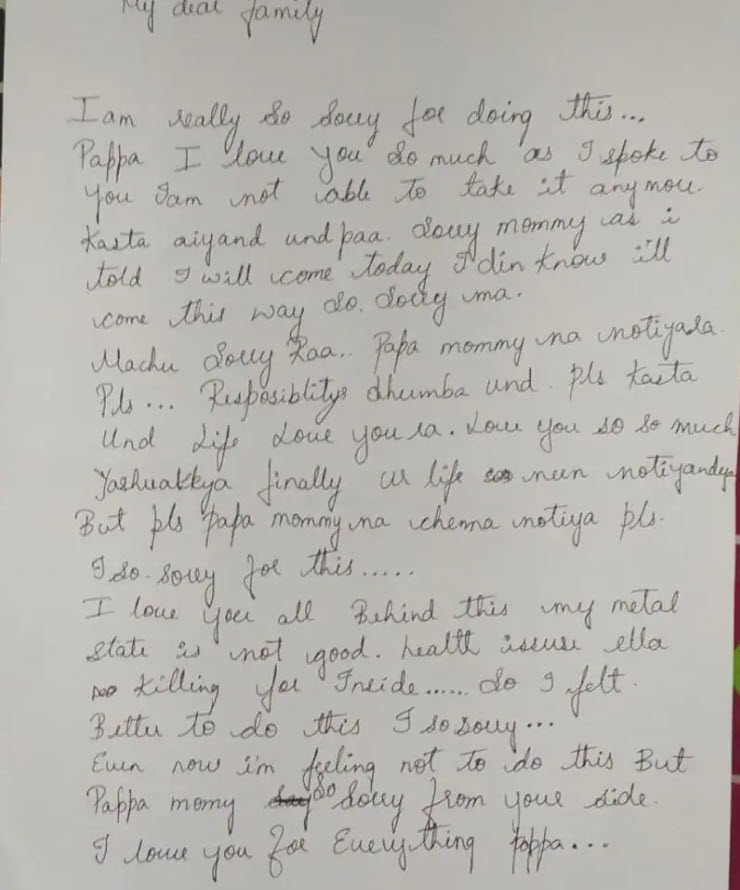 My dear family
I am really so sorry for doing this...
Pappa I love you so much as I spoke to
you Iam not able to take it anymore.
Kasta aiyand und paa. Sorry mommy as i
told I will come today I din know ill
come this way so. Sorry ma.
Machu sorry Raa.. Papa mommy na notiyala.
Pls... Resposiblitys dhumba und. pls Kasta
Und Life Love you ra. Love you so so much
Yashuakkya finally ur life neen notiyandya
But pls papa mommy na chenna notiya pls.
I so. sorry for this.....
I love you all Behind this my metal
state is not good. health issuse ella
killing for Inside...... So I felt.
Better to do this I so sorry...
Even now i'm feeling not to do this But
Pappa momy so Sorry from your side.
I love you for Everything pappa...